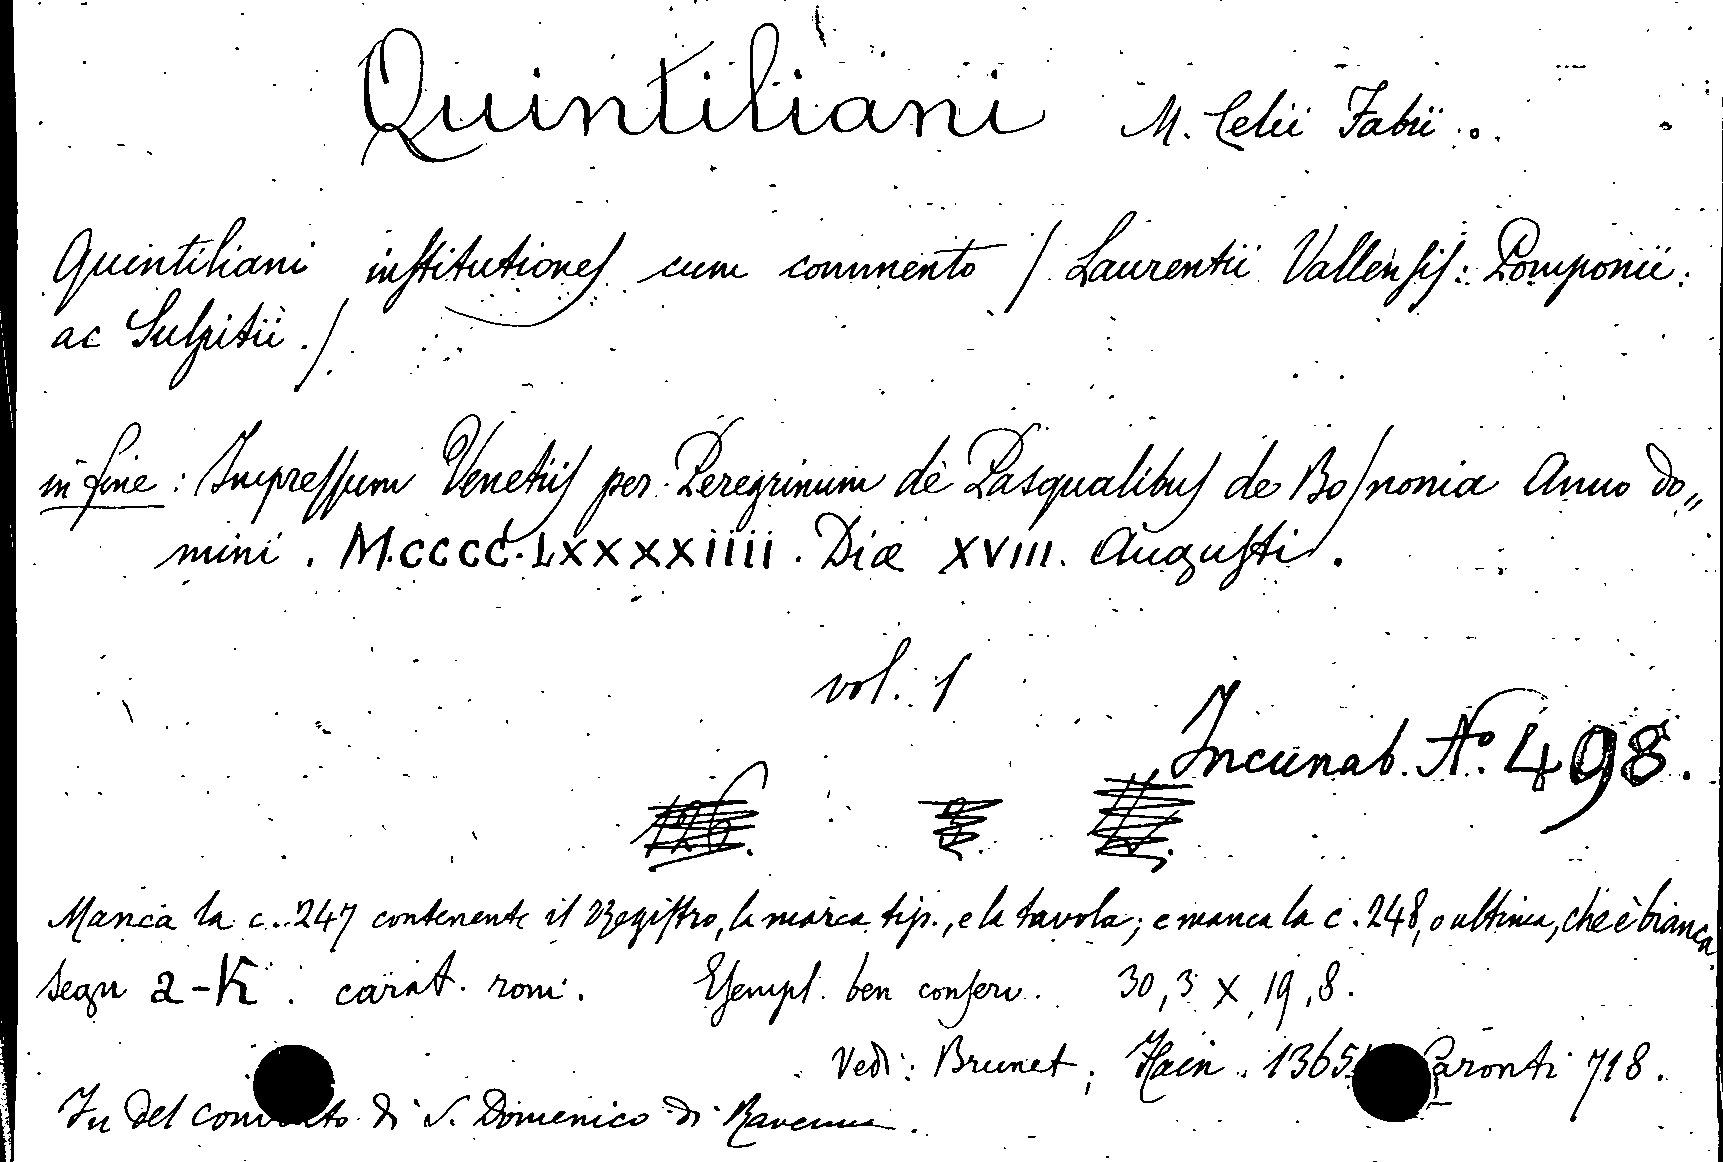 Quintiliani M. Celii Fabii.
Quintiliani institutiones cum commento / Laurentii Vallensis: Pomponii:
ac Sulpitii./
in fine: Impressum Venetiis per Peregrinum de Pasqualibus de Bononia Anno do„
mini. M.CCCC.LXXXXiiii. Die XVIII. Augusti.
vol. 1
Incunab. N.º 498.
Manca la c. 247 contenente il Registro, la marca tip., e la tavola; e manca la c. 248, o ultima, che è bianca.
segn a-K. carat. rom. Esempl. ben conserv. 30,3 X 19,8.
Vedi: Brunet, Hain 1365 Caronti 718.
Fu del convento di S. Domenico di Ravenna.